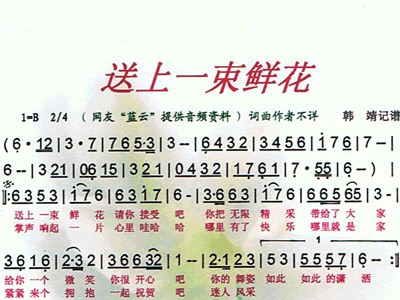 送上一束鲜花
1=B 2/4 (网友“蓝云”提供音频资料) 词曲作者不详 韩 靖记谱
(6·12|3·7|765·3|3--|6432|3456|1·532|
6--|321|0615|321|0432|1761|7·55|6--)|
6353|176|6132|2--|6432|3--|2765|65·
送上一束 鲜 花 请你 接受 吧 你把 无限 精 采 带给了 大 家
掌声 响起 一 片 心里 哇哈 哈 哪里 有了 快 乐 哪里 就是 家
1
3616|2·32|3616|6--|7123|2·3|176535|
给你 一个 微 笑 你很 开心 吧 你的 舞姿 如此 如此 的潇 洒
紧紧 来个 拥 抱 一起 祝贺 吧 迷人 风采